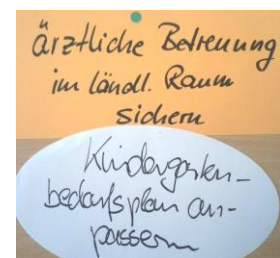 ärztliche Betreuung
im ländl. Raum
sichern
Kindergarten-
bedarfsplan an-
passen